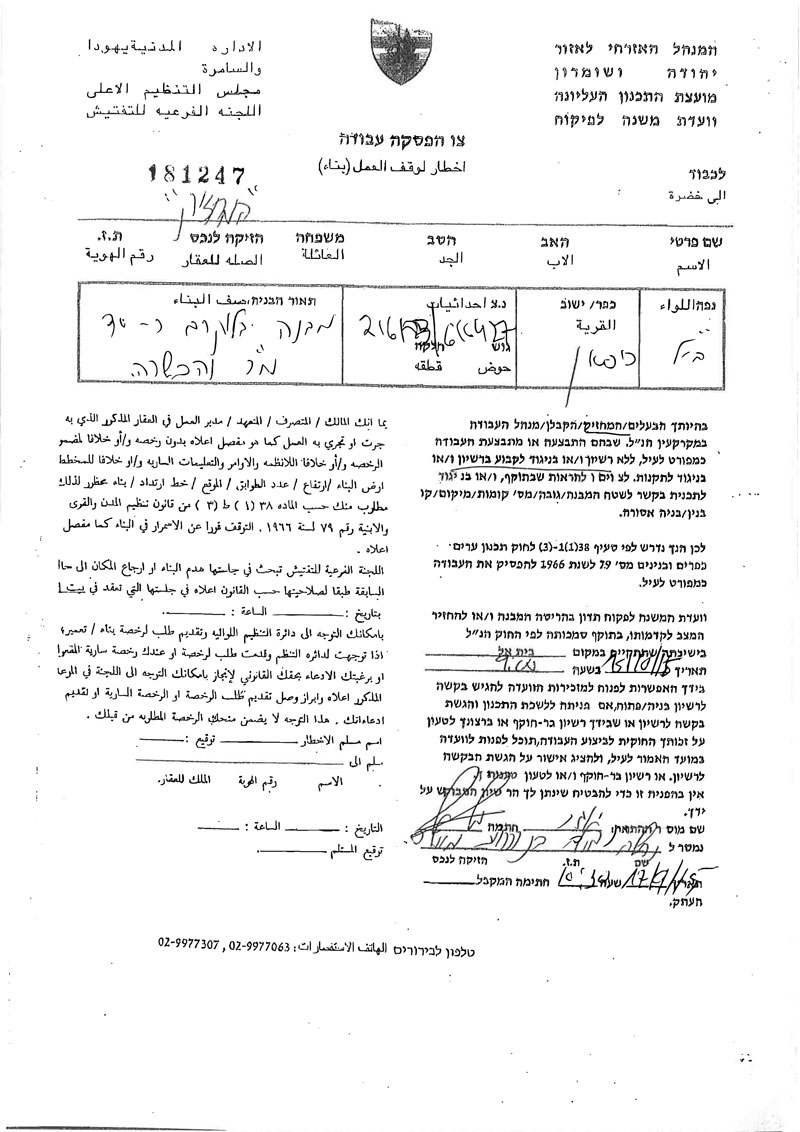 המנהל האזרחי לאזור
יהודה ושומרון
מועצת התכנון העליונה
וועדת משנה לפיקוח
الاداره المدنية يهودا
والسامرة
مجلس التنظيم الاعلى
اللجنه الفرعيه للتفتيش
צו הפסקה עבודה
اخطار لوقف العمل (بناء)
לכבוד
الى حضرة
181247
"המחזיק"
שם פרטי האב הסב משפחה הזיקה לנכס ת.ז.
الاسم الاب الجد العائلة الصله للعقار رقم الهوية
נפה اللواء כפר/ ישוב نـ.צ احداثيات תאור הבניה/صف البناء
القرية
גוש חלקה
حوض قطقه
מבנה
והכשרה.
בהיותך הבעלים/המחזיק/הקבלן/מנהל העבודה
במקרקעין הנ"ל. שבהם התבצעה או מתבצעת העבודה
כמפורט לעיל, ללא רשיון ו/או בניגוד לקבוע ברשיון ו/או
בניגוד לתקנות. לצוים ו להוראות שבתוקף, ו/או בניגוד
לתכנית בקשר לשטח המבנה/גובה/מס' קומות/מיקום/קו
בנין/בניה אסורה.
לכן הנך נדרש לפי סעיף 38(1)-(3) לחוק תכנון ערים
כפרים ובנינים מס' 79 לשנת 1966 להפסיק את העבודה
כמפורט לעיל.
וועדת המשנה לפקוח תדון בהריסת המבנה ו/או להחזיר
המצב לקדמותו, בתוקף סמכותה לפי החוק הנ"ל
בישיבתה שתתקיים במקום בית אל
תאריך בשעה
בידך האפשרות לפנות למזכירות הוועדה להגיש בקשה
לרשיון בניה/פתוח, אם פניתה ללשכת התכנון והגשת
בקשה לרשיון או שבידך רשיון בר-תוקף או ברצונך לטעון
על זכותך החוקית לביצוע העבודה, תוכל לפנות לוועדה
במועד האמור לעיל, ולהציג אישור על הגשת הבקשה
לרשיון. או רשיון בר-תוקף ו/או לטעון טענותיך.
אין בהפניה זו כדי להבטיח שינתן לך הרשיון המבוקש על
ידך.
שם מוסר ההתראה: חתימה
נמסר ל
שם ת.ז. הזיקה לנכס
תאריך שעה חתימה המקבל
העתק.
بما انك المالك / المتصرف / المتعهد / مدير العمل في العقار المذكور الذي به
جرت او تجري به العمل كما هو مفصل اعلاه بدون رخصه و/أو خلافا لمضمو
الرخصه و/أو خلافا للانظمه والاوامر والتعليمات الساريه و/او خلافا للمخطط
ارض البناء /ارتفاع / عدد الطوابق / الموقع / خط ارتداد / بناء محظور لذلك
مطلوب منك حسب الماده ٣٨ (١) ط (٣) من قانون تنظيم المدن والقرى
والابنية رقم ٧٩ لسنة ١٩٦٦ . التوقف فورا عن الاسمرار في البناء كما مفصل
اعلاه .
اللجنه الفرعية للتفتيش تبحث في جاستها هدم البناء او ارجاع المكان الى حالا
السابقة طبقا لصلاحيتها حسب القانون اعلاه في جلستها التي تعقد في بيت
بتاريخ : الساعة :
بامكانك التوجه الى دائرة التنظيم اللوائيه وتقديم طلب لرخصة بناء / تعمير؛
اذا توجهت لدائره التنظم وقدمت طلب لرخصة او عندك رخصة سارية المفعوا
او برغبتك الادعاء بحقك القانوني لإنجاز بامكانك التوجه الى اللجنة في الموعا
المذكور اعلاه وابراز وصل تقديم طلب الرخصة او الرخصة السارية او تقديم
ادعاءاتك . هذا التوجه لا يضمن منحك الرخصة المطلوبه من قبلك .
اسم مسلم الاخطار توقيع :
سلم الى
الاسم رقم الهوية الملك للعقار.
التاريخ : الساعة :
توقيع المستلم
טלפון לבירורים الهاتف الاستفسارات : 02-9977063 , 02-9977307